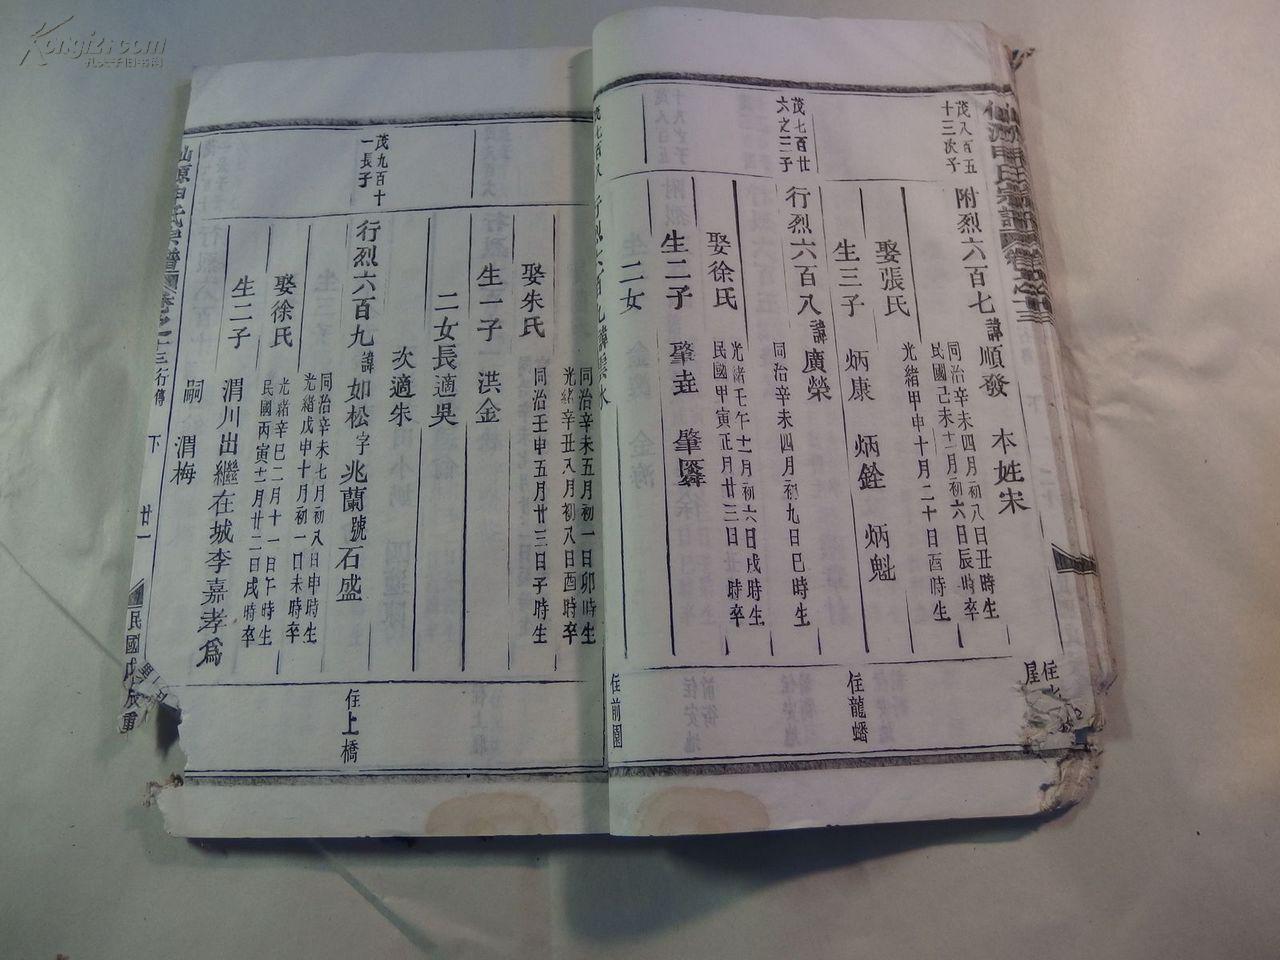 茂八百五
十三次子
附烈六百七諱順發 本姓宋
同治辛未四月初八日丑時生
民國己未十二月初六日辰時卒
娶張氏
光緒甲申十月二十日酉時生
生三子 炳康 炳銓 炳魁
住龍蟠
茂七百廿
六之三子
行烈六百八諱廣榮
同治辛未四月初九日巳時生
娶徐氏
光緒壬午十一月初六日戌時生
民國甲寅正月廿三日丑時卒
生二子 肇垚
生二女
住前園
同治辛未五月初一日卯時生
光緒辛丑八月初八日酉時卒
娶朱氏
同治壬申五月廿三日子時生
生一子 洪金
二女長適吳
次適朱
茂九百十
一長子
行烈六百九諱如松字兆蘭號石盛
同治辛未七月初八日申時生
光緒戊申十月初一日未時卒
娶徐氏
光緒辛巳二月十一日午時生
民國丙寅十一月廿二日戌時卒
生二子 渭川出繼在城李嘉孝為
嗣 渭梅
住上橋
行傳
下
廿一
Kongfz.com
孔夫子旧书网